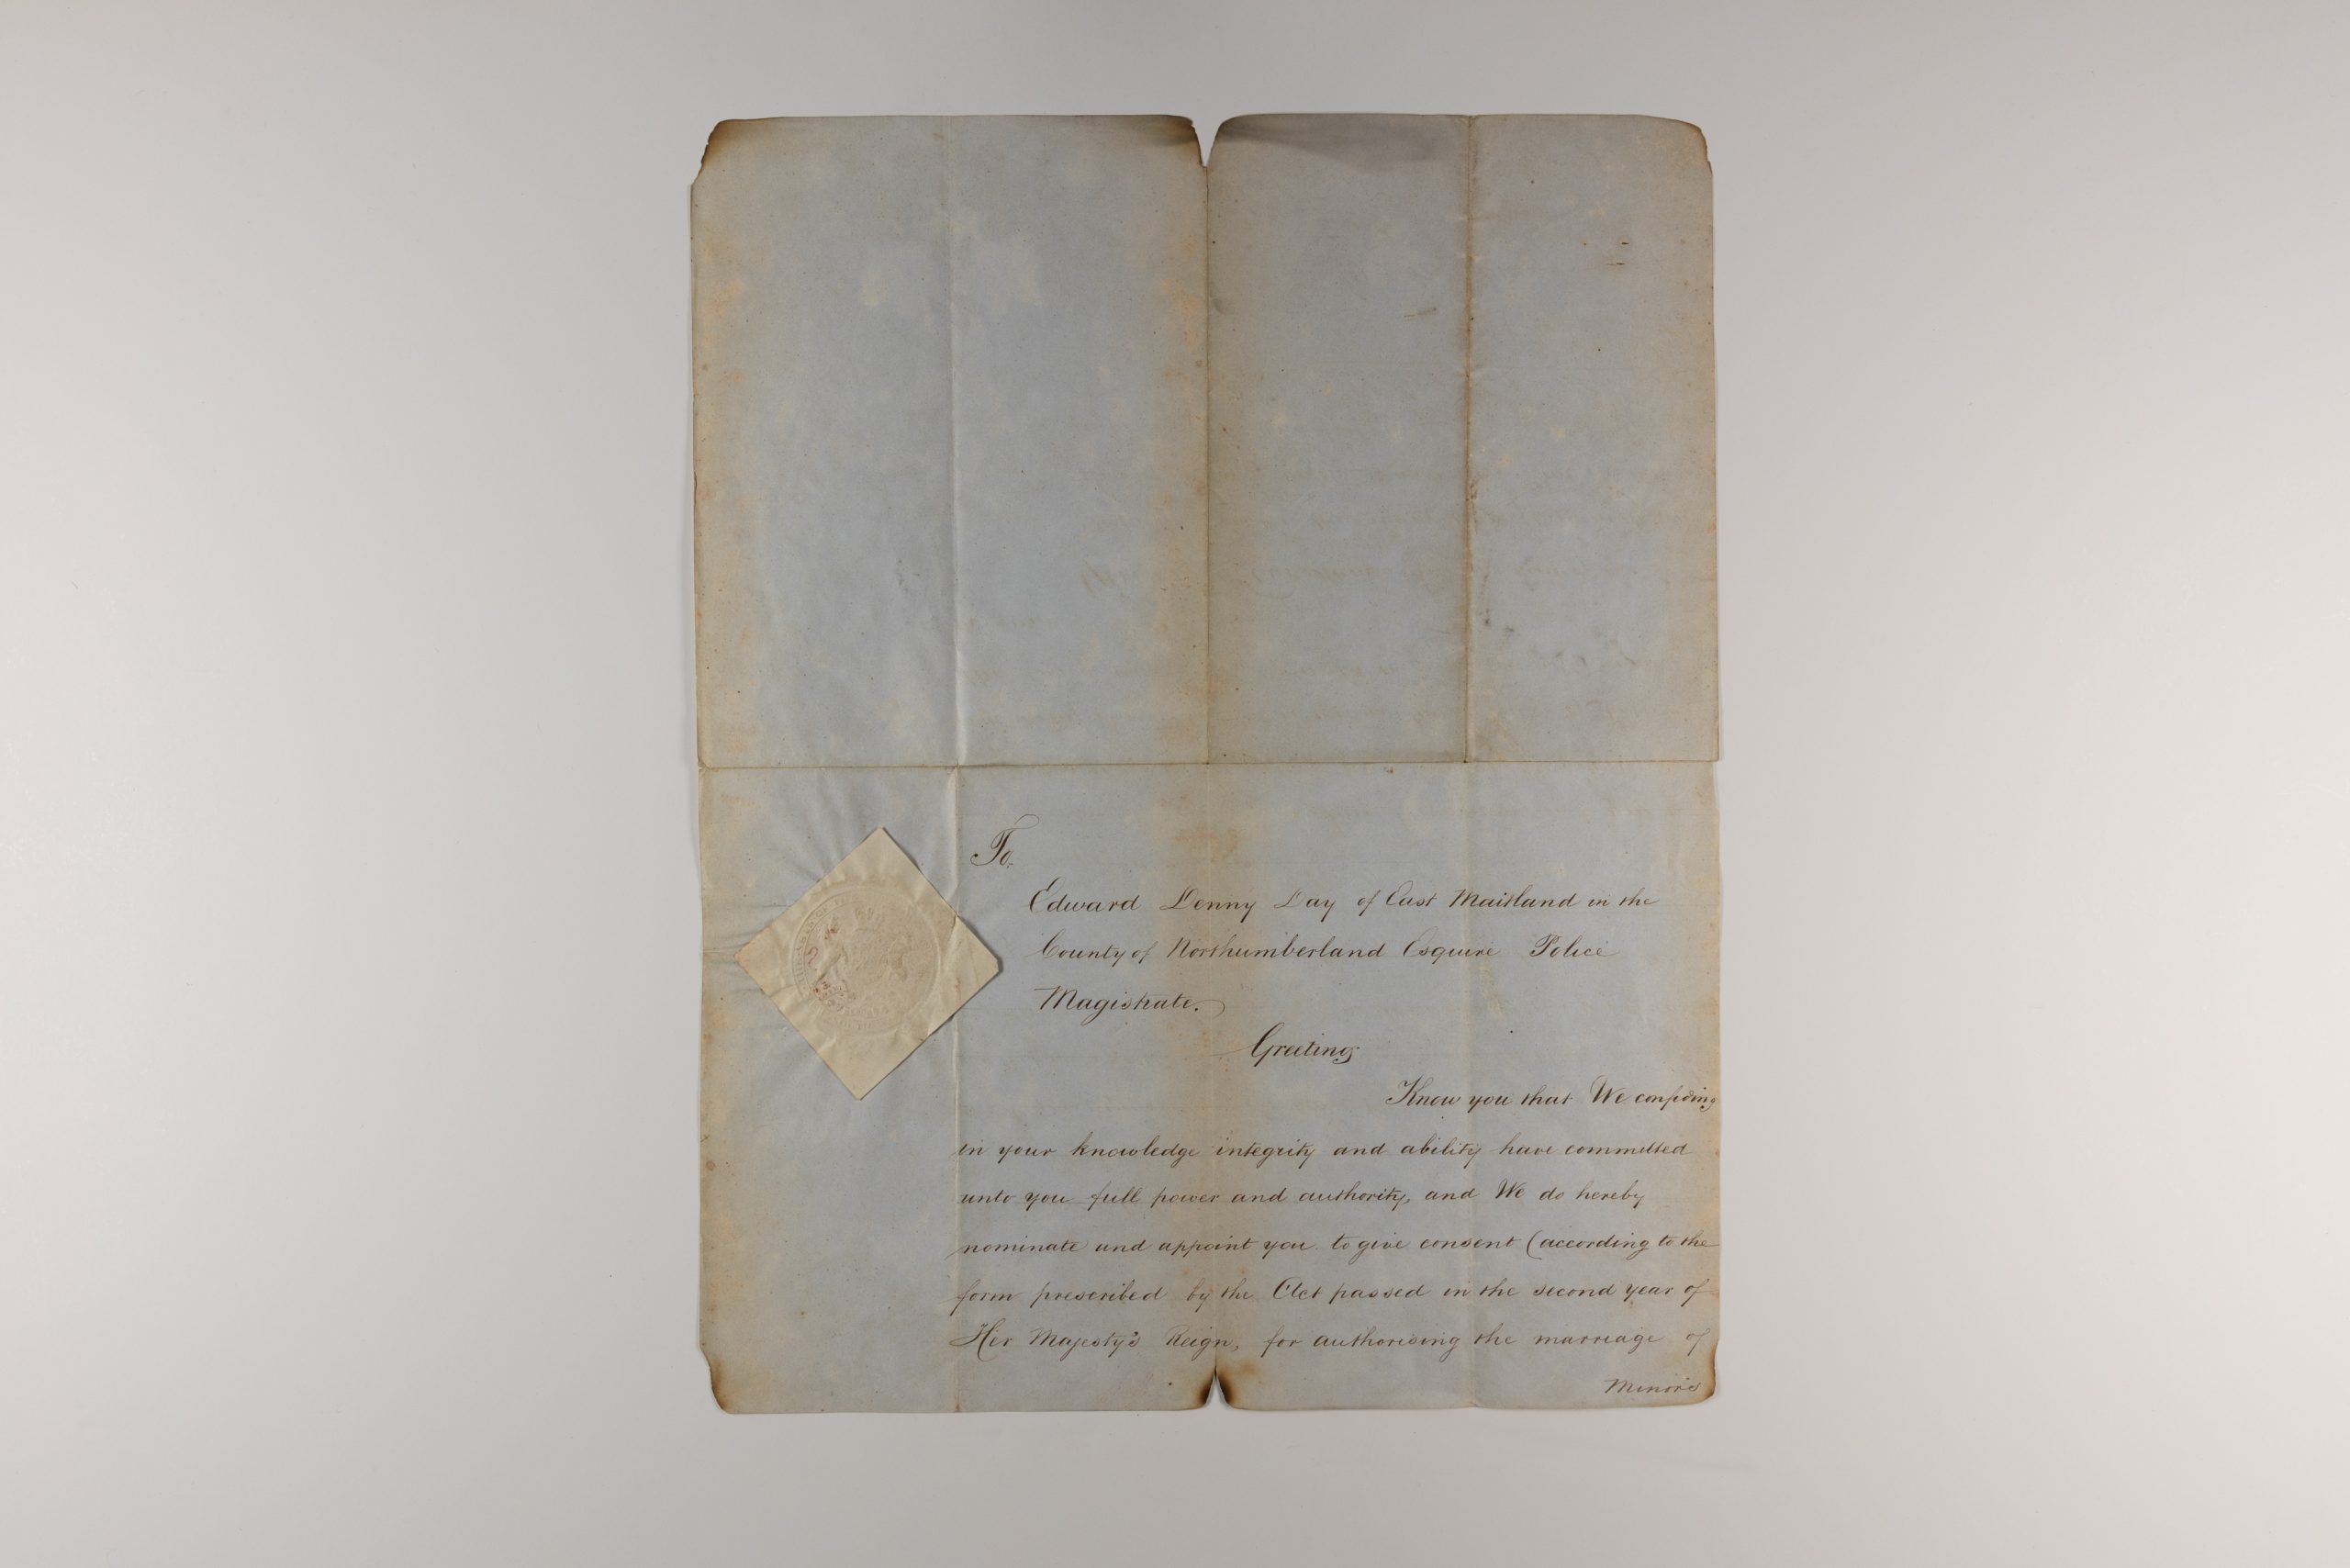 To
Edward Denny Day of East Maitland in the
County of Northumberland Esquire Police
Magistrate.
Greeting
Know you that We confiding
in your knowledge integrity and ability have committed
unto you full power and authority, and We do hereby
nominate and appoint you to give consent (according to the
form prescribed by the Act passed in the second year of
Her Majesty's Reign, for authorising the marriage of
Minors